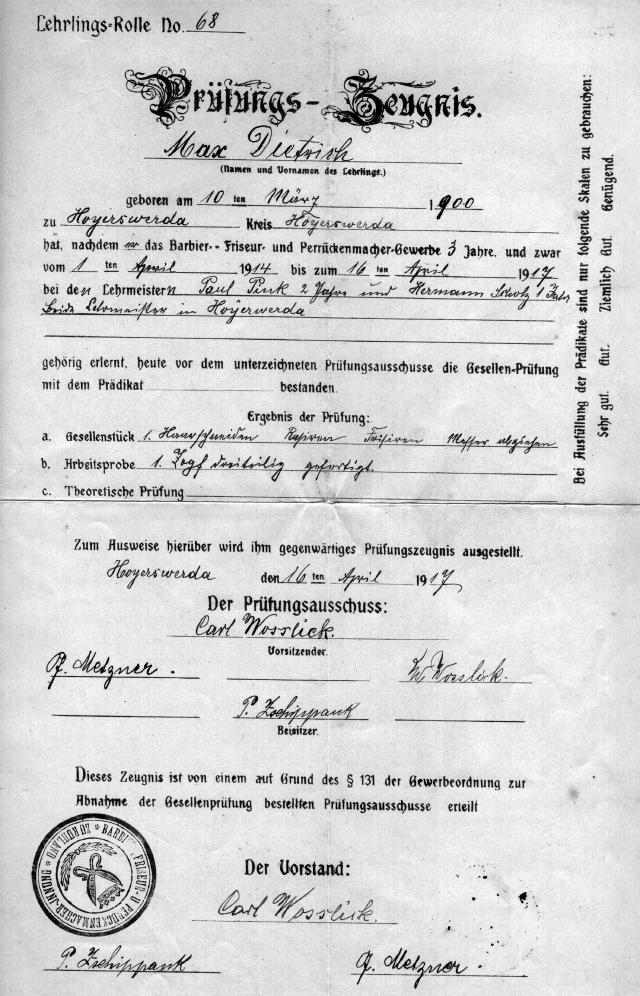 Lehrlings-Rolle No. 68
Prüfungs-Zeugnis.
Max Dietrich
(Namen und Vornamen des Lehrlings.)
geboren am 10 ten März 1900
zu Hoyerswerda Kreis Hoyerswerda
hat, nachdem er das Barbier- Friseur- und Perrückenmacher-Gewerbe 3 Jahre, und zwar
vom 1 ten April 1914 bis zum 16 ten April 1917
bei den Lehrmeistern Paul Pink 2 Jahre und Hermann Scholz 1 Jahr
Beide Lehrmeister in Hoyerswerda
gehörig erlernt, heute vor dem unterzeichneten Prüfungsausschusse die Gesellen-Prüfung
mit dem Prädikat bestanden.
Ergebnis der Prüfung:
a. Gesellenstück 1. Haarschneiden Rasiren Frisiren Messer abziehen
b. Arbeitsprobe 1. Zopf dreiteilig gefertigt.
c. Theoretische Prüfung
Zum Ausweise hierüber wird ihm gegenwärtiges Prüfungszeugnis ausgestellt.
Hoyerswerda den 16 ten April 1917
Der Prüfungsausschuss:
Carl Wosslick.
Vorsitzender.
P. Metzner. W. Wosslick.
P. Zschippank
Beisitzer.
Dieses Zeugnis ist von einem auf Grund des § 131 der Gewerbeordnung zur
Abnahme der Gesellenprüfung bestellten Prüfungsausschusse erteilt
Der Vorstand:
Carl Wosslick.
P. Zschippank P. Metzner.
BARBIER- FRISEUR- U PERÜCKENMACHER-INNUNG
Bei Ausfüllung der Prädikate sind nur folgende Skalen zu gebrauchen:
Sehr gut. Gut. Ziemlich Gut. Genügend.